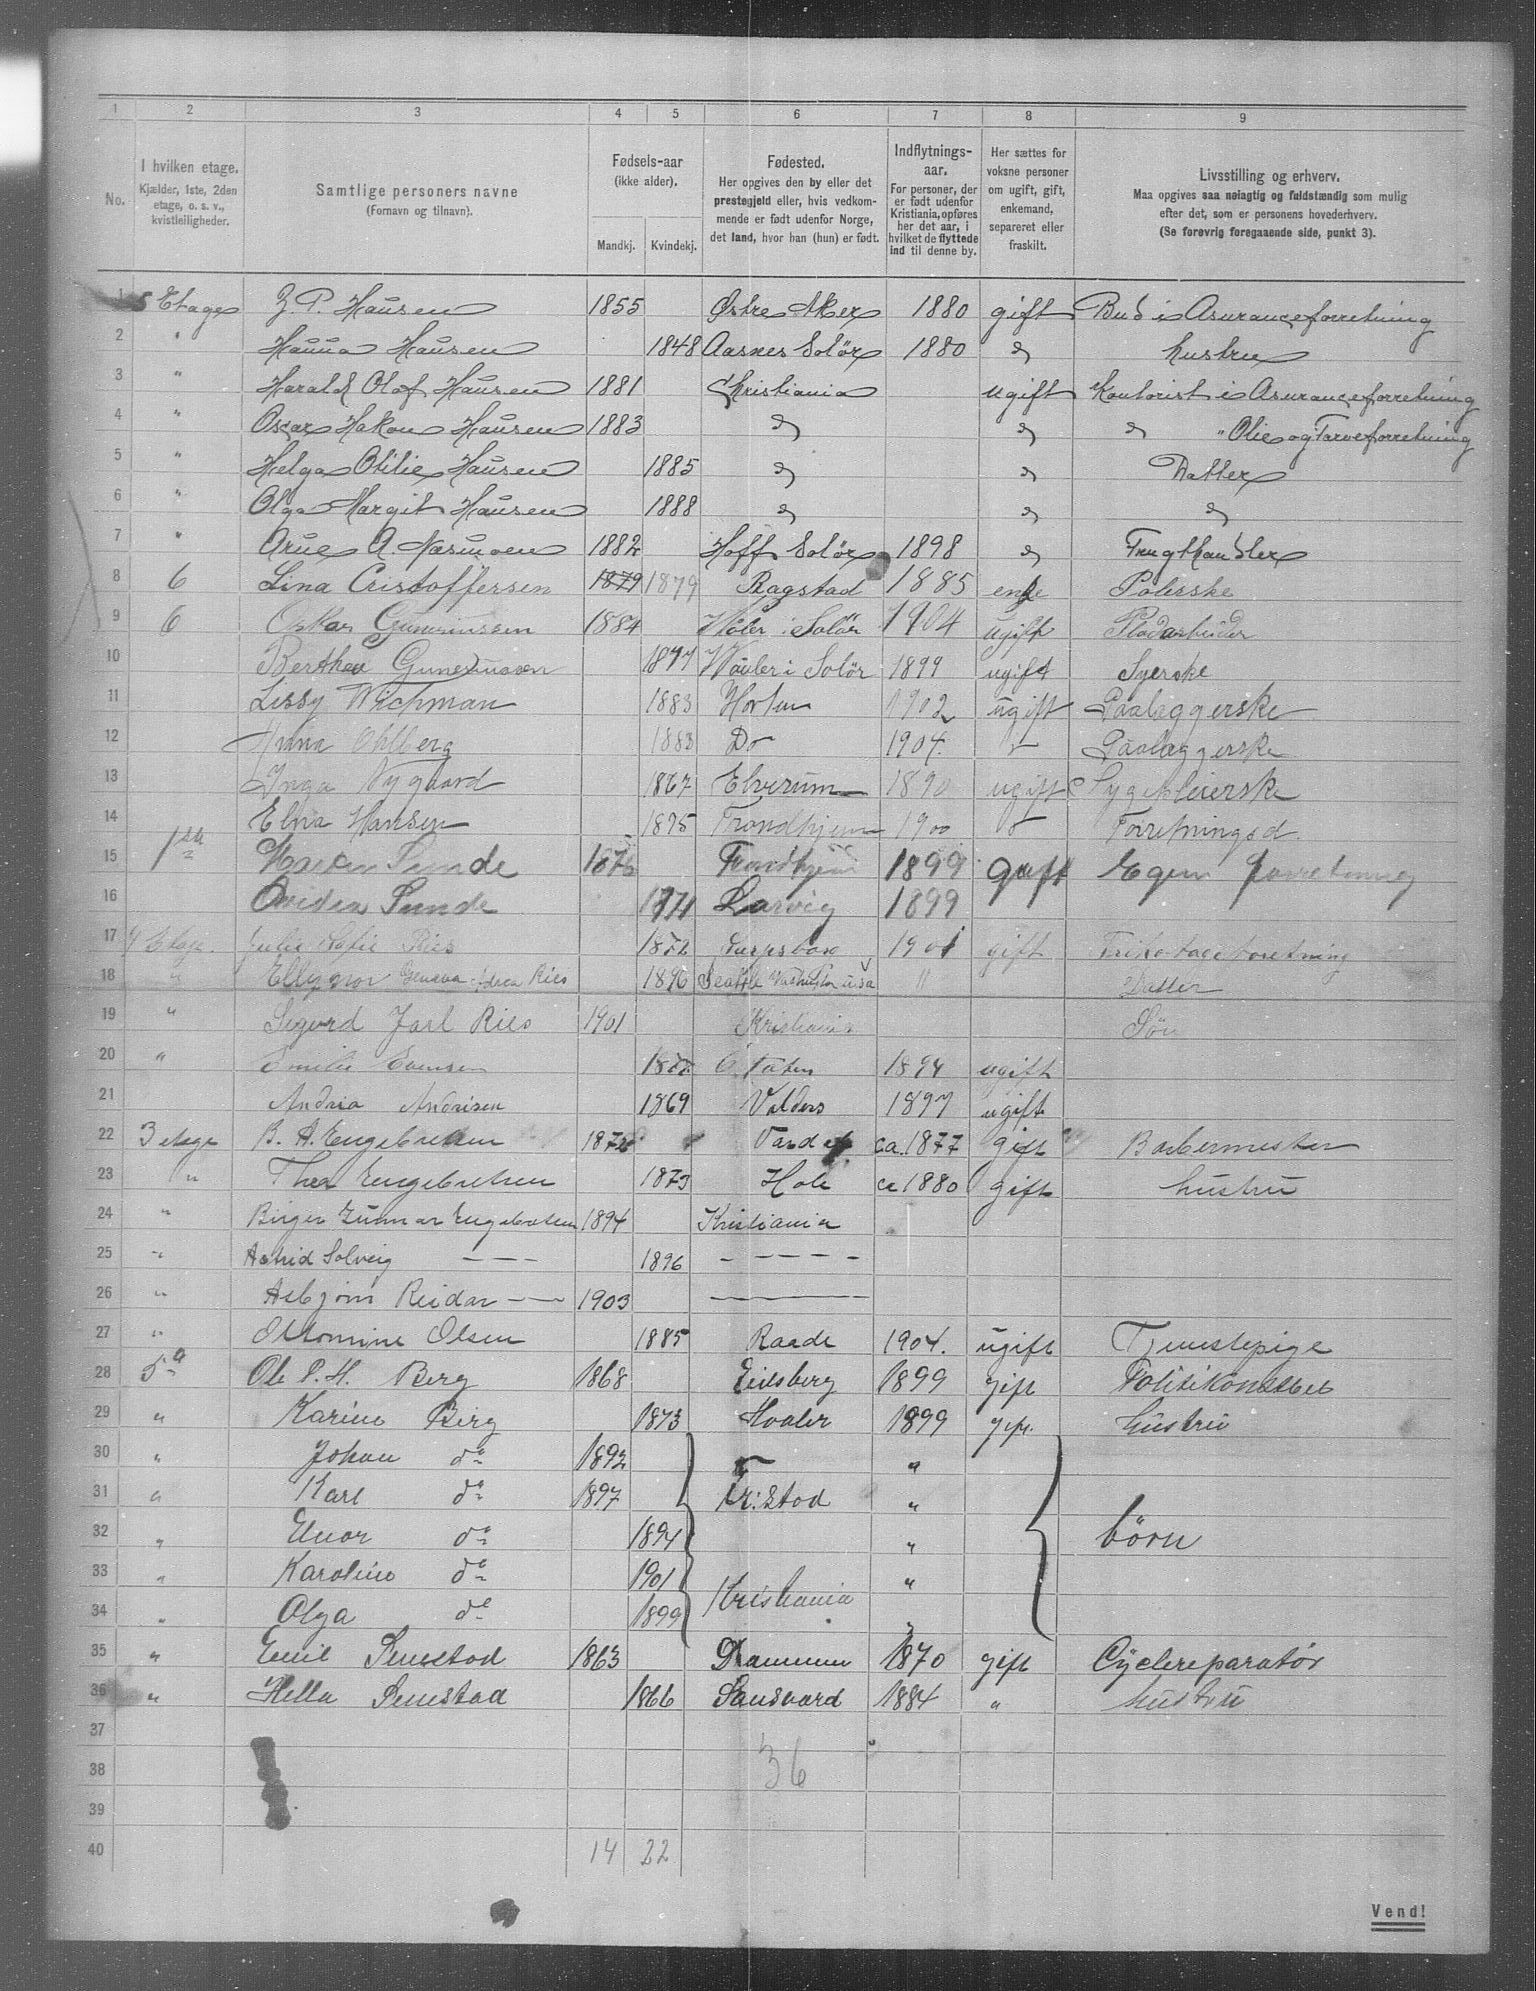 1 2 3 4 5 6 7 8 9
No.
I hvilken etage.
Kjælder, 1ste, 2den
etage, o. s. v.,
kvistleiligheder.
Samtlige personers navne
(Fornavn og tilnavn).
Fødsels-aar
(ikke alder).
Mandkj. Kvindekj.
Fødested.
Her opgives den by eller det
prestegjeld eller, hvis vedkom-
mende er født udenfor Norge,
det land, hvor han (hun) er født.
Indflytnings-
aar.
For personer, der
er født udenfor
Kristiania, opføres
her det aar, i
hvilket de flyttede
ind til denne by.
Her sættes for
voksne personer
om ugift, gift,
enkemand,
separeret eller
fraskilt.
Livsstilling og erhverv.
Maa opgives saa nøiagtig og fuldstændig som mulig
efter det, som er personens hovederhverv.
(Se forøvrig foregaaende side, punkt 3).
1 5 Etage P. Hansen 1855 Østre Aker 1880 gift Bud i Asuranceforretning
2 " Hanna Hansen 1848 Aasnes Solør 1880 d hustru
3 " Harald Olaf Hansen 1881 Christiania ugift Kontorist i Asuranceforretning
4 " Oscar Hakon Hansen 1883 d d d " Olie og Farveforretning
5 " Helga Otilie Hansen 1885 d d Datter
6 " Olga Margit Hansen 1888 d d d
7 " Arne A. Næsmoen 1882 Hoff Solør 1898 d Frugthandler
8 6 Lina Cristoffersen 1879 1879 Ragstad 1885 enke Polerske
9 6 Oskar Guneriussen 1884 Våler i Solør 1904 ugift Pladarbeider
10 Berthea 1877 Vaaler i Solør 1899 ugift Syerske
11 Lissy Wichman 1883 Horten 1902 ugift Paalæggerske
12 Anna Ohlberg 1883 Do 1904. Paalæggerske
13 Inga Nygaard 1867 Elverum 1890 ugift Sygepleierske
14 Hansen 1895 Trondhjem 1900 Forretningsd.
15 1ste Sunde Trondhjem 1899 gift Egen forretning
16 Sunde 1871 Larvig 1899
17 4 Etage. Julie Sofie Ries 1872 Sarpsborg 1901 gift Trikotage forretning
18 " Geneva Ries 1896 Seattle Washington U.S.A " Datter
19 " Sigurd Jarl Ries 1901 Kristiania Søn
20 " Emilie Evensen Ø Toten 1894 ugift
21 Andria Andrisen 1869 Valders 1897 ugift
22 3 etage B. A. Engebretsen ca. 1877 gift Barbermester
23 " Thea Engebretsen 1873 Hole ca 1880 gift hustru
24 " Birger Gunnar Engebretsen 1894 Kristiania
25 " Astrid Solveig — — — 1896 — — — — —
26 " Asbjørn Reidar — — 1903 ————
27 " Ottomine Olsen 1885 Raade 1904. ugift Tjenestepige
28 5te Ole P. H. Berg 1868 Eidsberg 1899 gift Politikonstbel
29 " Karine Berg 1873 Hvaler 1899 gift hustru
30 " Johan do 1892 "
31 " Karl do 1897 Fr.stad "
32 " Elnor do 1894 " børn
33 " Karoline do 1901 "
34 " Olga do 1899 Kristiania "
35 " Emil Senstad 1863 Drammen 1870 gift Cyclereparatør
36 " Hella Senstad 1866 Sandsvard 1884 " hustru
37
38 36
39
40 14 22
Vend!